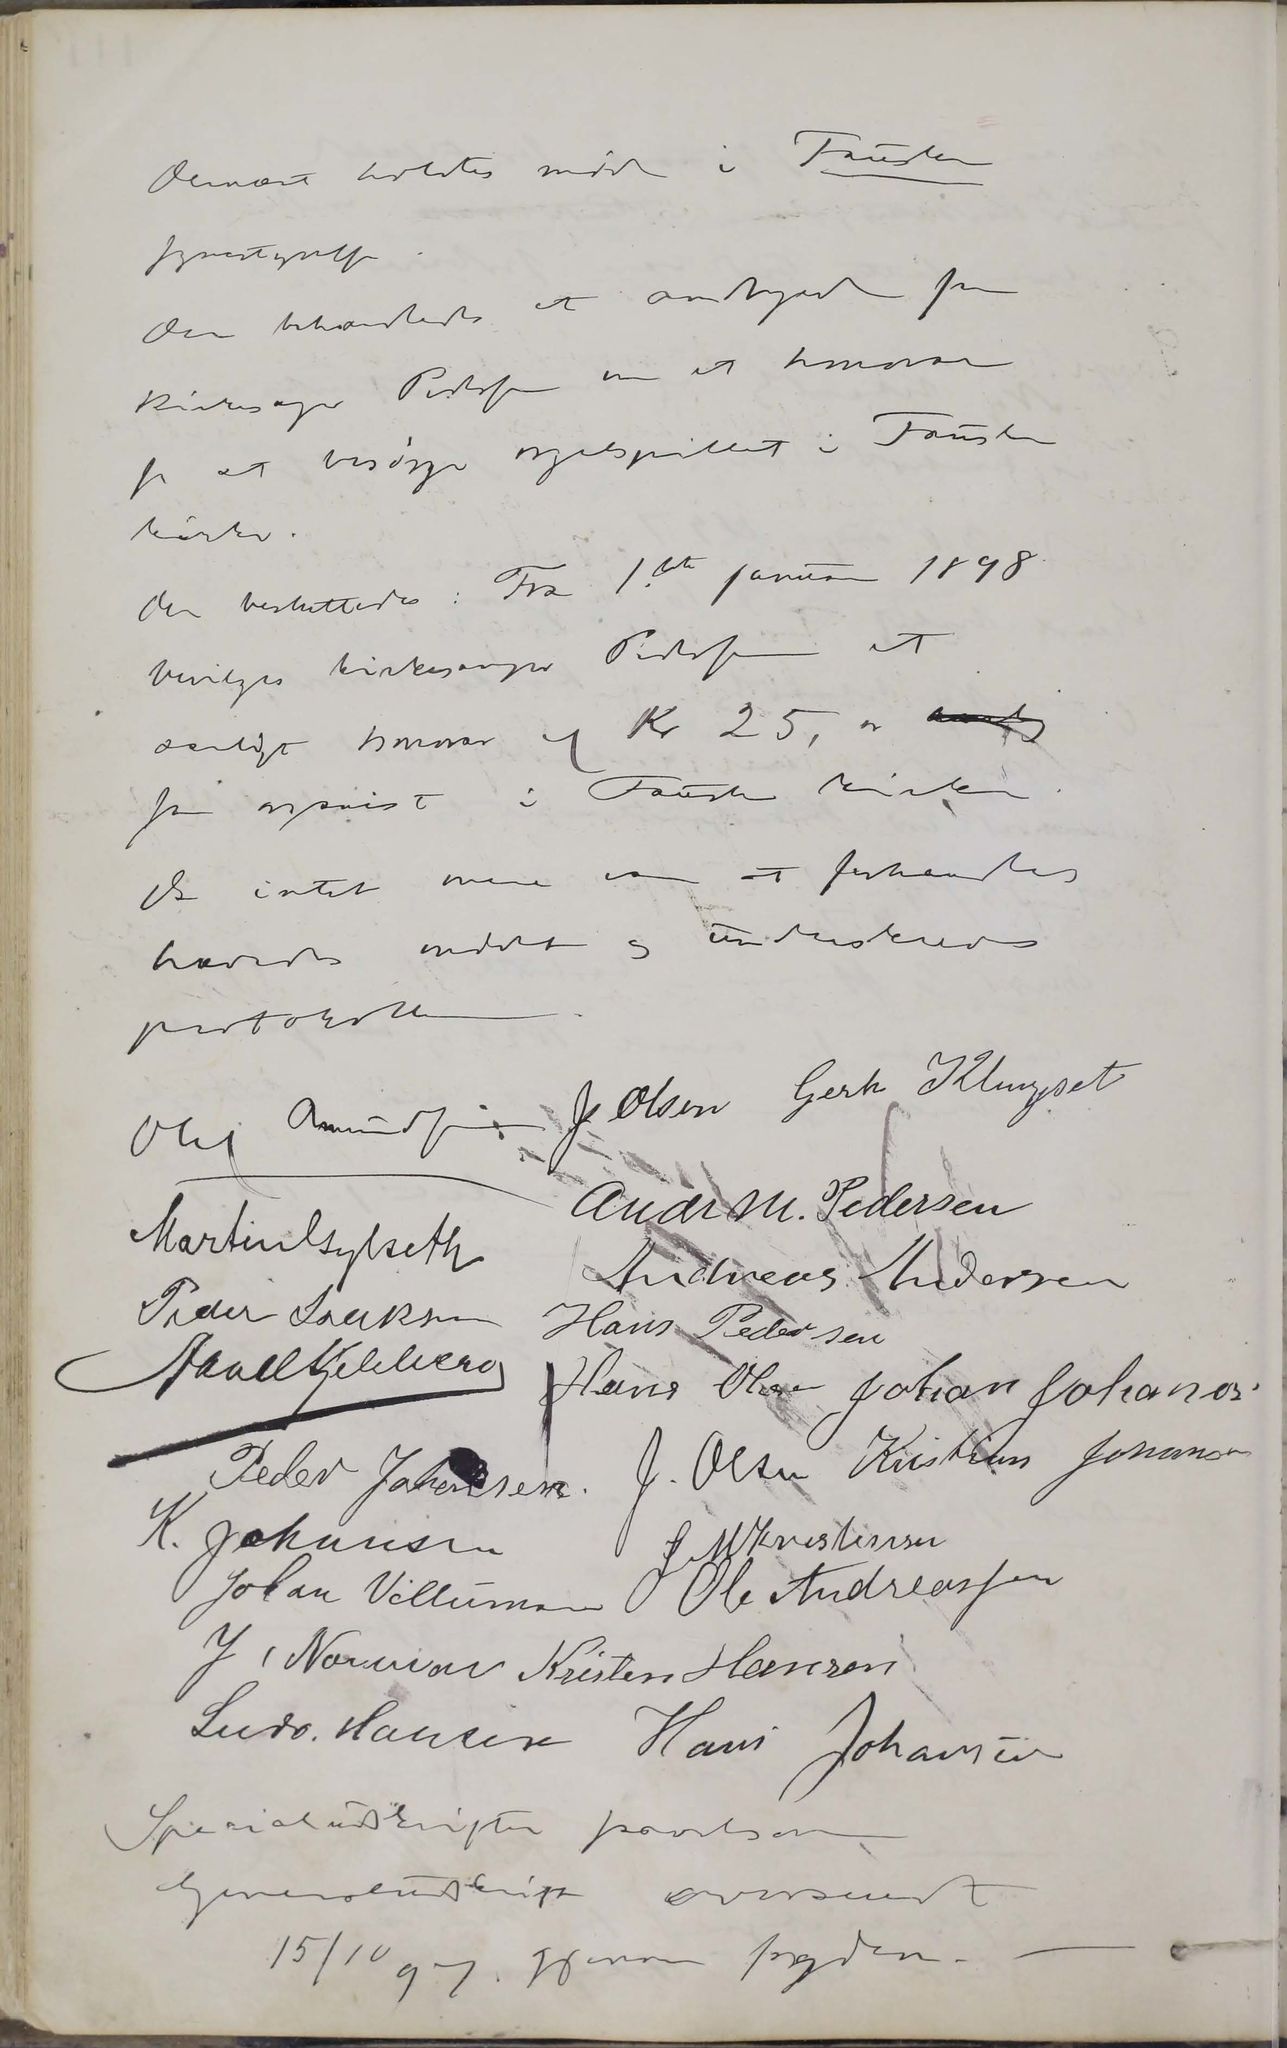 Dernæst holdtes møde i Fauske
sognestyrelse.
Der behandledes et andragende fra
kirkesanger Pedersen om et honorar
for at besørge orgelspillet i Fauske
kirke.
Der besluttedes: Fra 1ste januar 1898
bevilges kirkesanger Pedersen et
aarligt honorar af Kr 25,
som organist i Fauske kirke.
Da intet mere var at forhandles
hævedes mødet og underskreves
protokollen.
Olaf Amundsen J Olsen Gerh Klungset
Martin Sylseth Andr M. Pedersen
Andreas Andersen
Peder Isaksen Hans Pedersen
Kjeldberg Hans Olsen Johan Johans.
Peder Johansen. J. Olsen Kristian Johansen
K. Johansen J M Kristensen
Johan Villumsen Ole Andreassen
J, Norman Kristen Hansen
Ludv. Hansen Hans Johansen
Specialudskrifter
Generaludskrift oversendt
15/10 97. gjennem fogden.